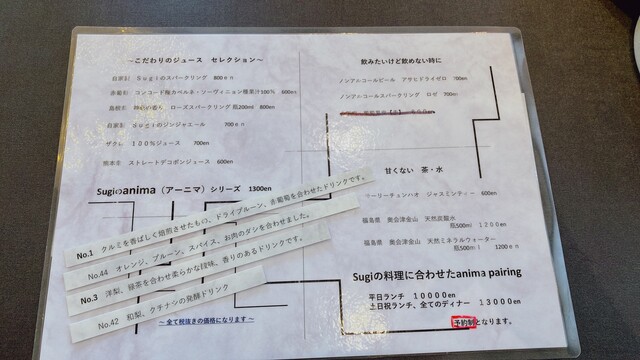 ～こだわりのジュース セレクション～
自家製 Sugiのスパークリング 800en
赤葡萄 コンコード種カベルネ・ソーヴィニョン種果汁100% 600en
島根県 神話の香り ローズスパークリング 瓶200ml 800en
自家製 Sugiのジンジャエール 700en
ザクレ 100%ジュース 700en
熊本県 ストレートデコポンジュース 600en
Sugiのanima（アーニマ）シリーズ 1300en
No.1 クルミを香ばしく焙煎させたもの、ドライプルーン、赤葡萄を合わせたドリンクです。
No.44 オレンジ、プルーン、スパイス、お肉のダシを合わせました。
No.3 洋梨、緑茶を合わせ柔らかな酸味、香りのあるドリンクです。
No.42 和梨、クチナシの発酵ドリンク
～ 全て税抜きの価格になります ～
飲みたいけど飲めない時に
ノンアルコールビール アサヒドライゼロ 700en
ノンアルコールスパークリング ロゼ 700en
甘くない 茶・水
マーリーチュンハオ ジャスミンティー 600en
福島県 奥会津金山 天然炭酸水
瓶500ml 1200en
福島県 奥会津金山 天然ミネラルウォーター
瓶500ml 1200en
Sugiの料理に合わせたanima pairing
平日ランチ 10000en
土日祝ランチ、全てのディナー 13000en
予約制となります。